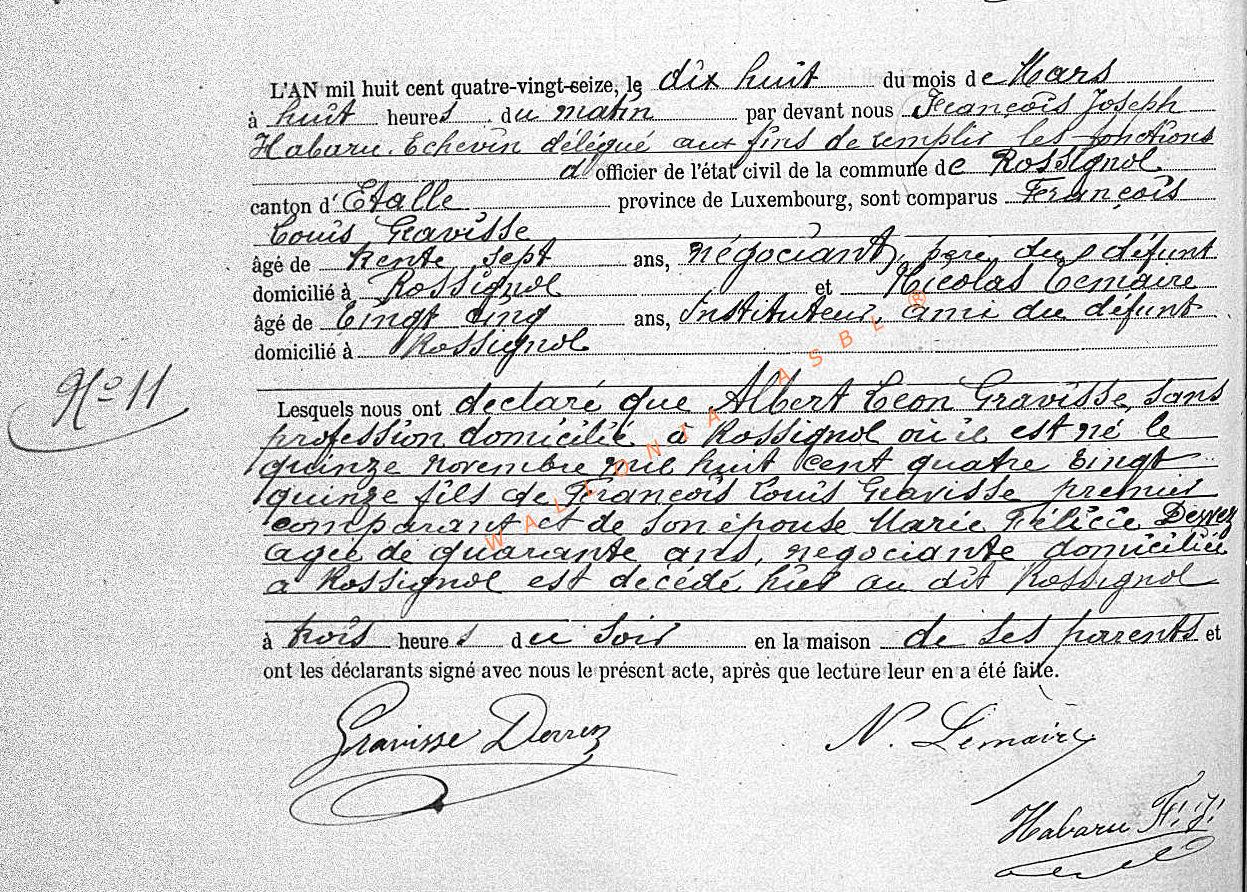 L'AN mil huit cent quatre-vingt-seize, le dix huit du mois de Mars
à huit heures du matin par devant nous François Joseph
Habaru. Echevin délégué aux fins de remplir les fonctions
d'officier de l'état civil de la commune de Rossignol
canton d'Etalle province de Luxembourg, sont comparus François
Louis Gravisse
âgé de trente sept ans, négociant, père du défunt
domicilié à Rossignol et Nicolas Lemaire
âgé de vingt cinq ans, Instituteur, ami du défunt
domicilié à Rossignol
N° 11
Lesquels nous ont déclaré que Albert Léon Gravisse, sans
profession domicilié à Rossignol où il est né le
quinze novembre mil huit cent quatre vingt
quinze fils de François Louis Gravisse premier
comparant et de son épouse Marie Félicie
agée de quarante ans, négociante domiciliée
à Rossignol est décédé hier au dit Rossignol
à trois heures du soir en la maison de ses parents et
ont les déclarants signé avec nous le présent acte, après que lecture leur en a été faite.
Gravisse
N. Lemaire
Habaru F. J.
WALLONIA ASBL ®